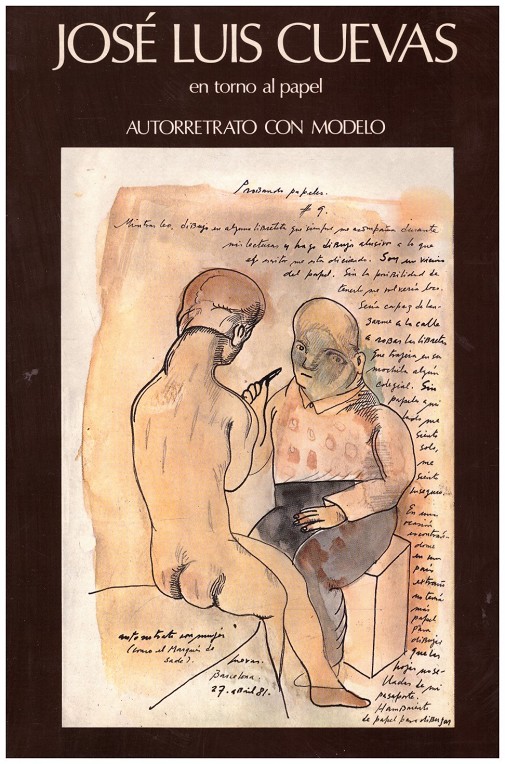 JOSÉ LUIS CUEVAS
en torno al papel
AUTORRETRATO CON MODELO
Probando papeles.
# 9.
Mientras leo, dibujo en alguna libretita que siempre me acompaña durante
mis lecturas y hago dibujo alusivo a lo que
el escrito me está diciendo. Soy un vicioso
del papel. Sin la posibilidad de
tenerlo me volvería loco.
Sería capaz de lan-
zarme a la calle
a robar las libretas
que trajera en su
mochila algún
colegial. Sin
papel a mi
lado me
siento
solo,
me
siento
inseguro.
En una
ocasión
encontrán-
dome
en un
país
extraño
no tenía
más
papel
para
dibujar
que las
hojas no se-
lladas de mi
pasaporte.
Hambriento
de papel para dibujar
autorretrato con mujer
(como el Marqués de
Sade).
Cuevas.
Barcelona.
27. abril 81.